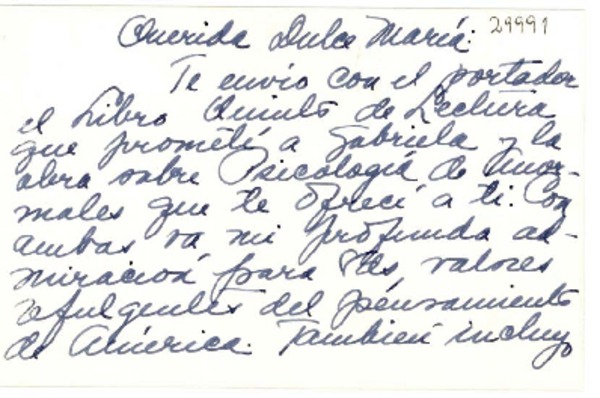 Querida Dulce María: 29991
Te envío con el portador
el Libro Quinto de Lectura
que prometí a Gabriela y la
obra sobre Psicología de Anor-
males que te ofrecí a ti. Con
ambas va mi profunda ad-
miración para Uds, valores
refulgentes del pensamiento
de América. También incluyo